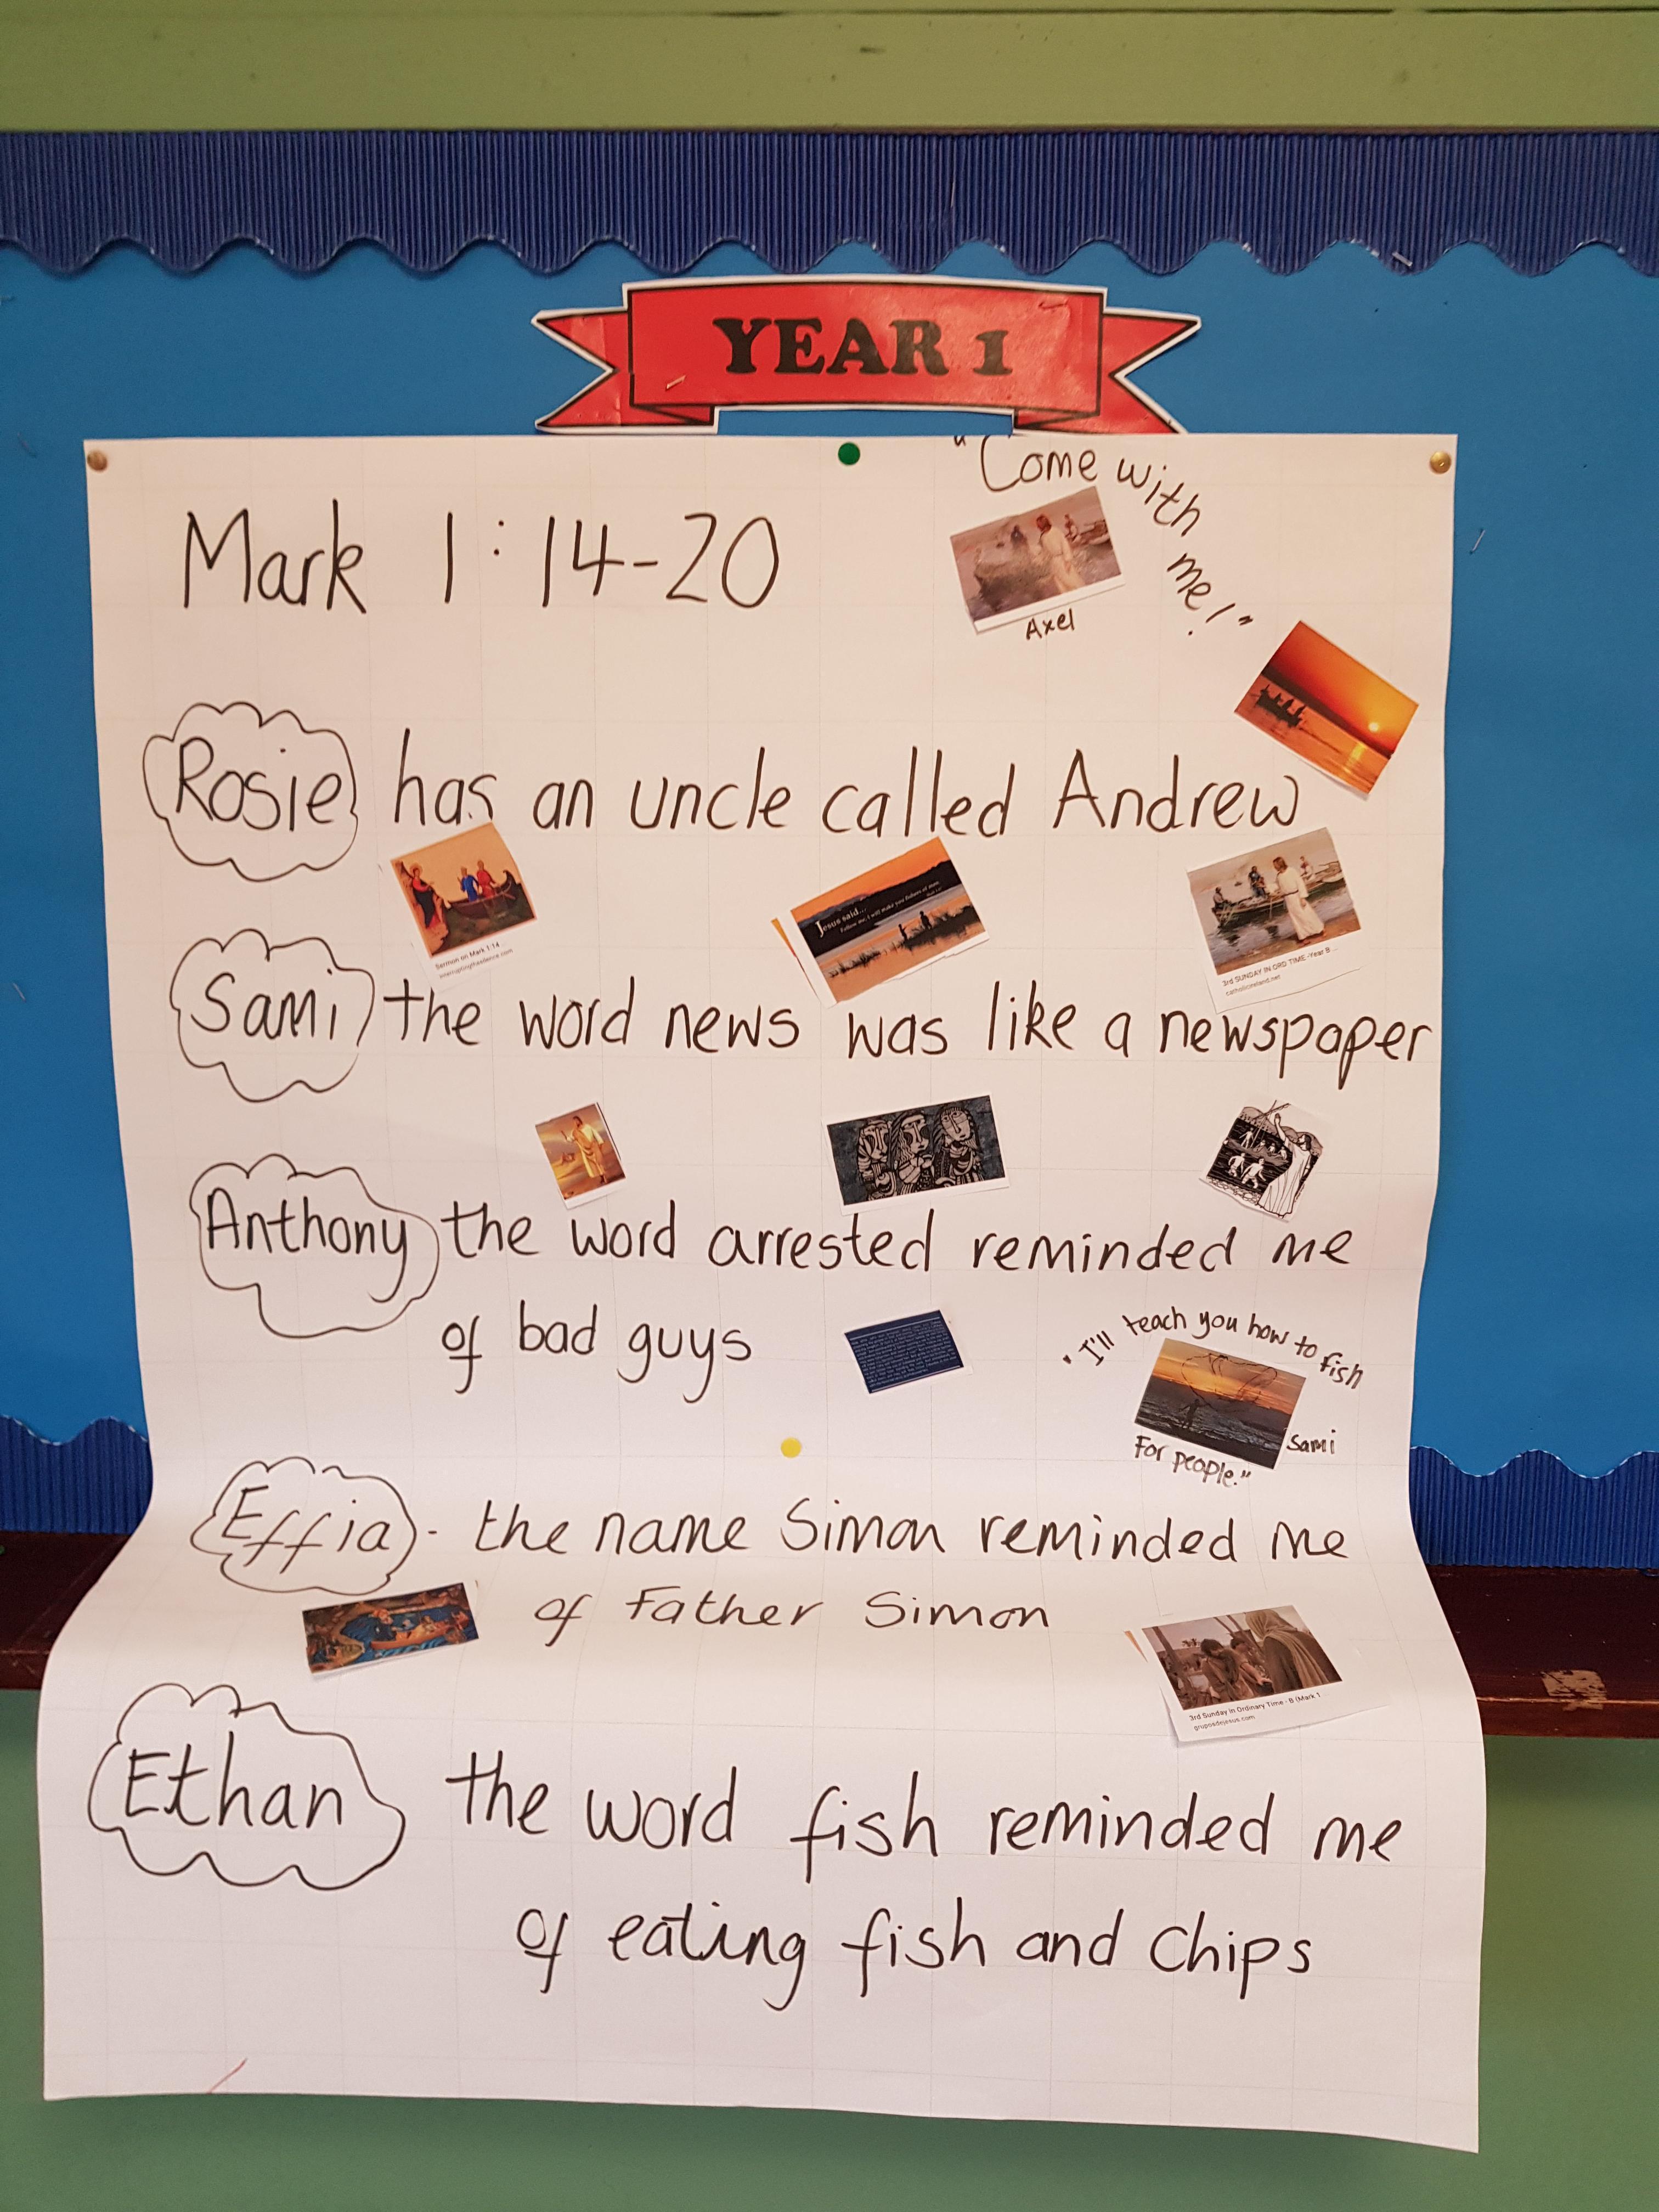 YEAR 1
"Come with me!"
Mark 1:14-20
Axel
Rosie has an uncle called Andrew
Sermon on Mark 1:14 ...
interruptingthesilence.com
Jesus said...
Follow me, I will make you fishers of men.
3rd SUNDAY IN ORD TIME -Year B ...
catholicireland.net
Sami the word news was like a newspaper
Anthony the word arrested reminded me
of bad guys
"I'll teach you how to fish
For people."
Sami
Effia - the name Simon reminded me
of Father Simon
3rd Sunday in Ordinary Time - B (Mark 1
gruposdejesus.com
Ethan the word fish reminded me
of eating fish and chips